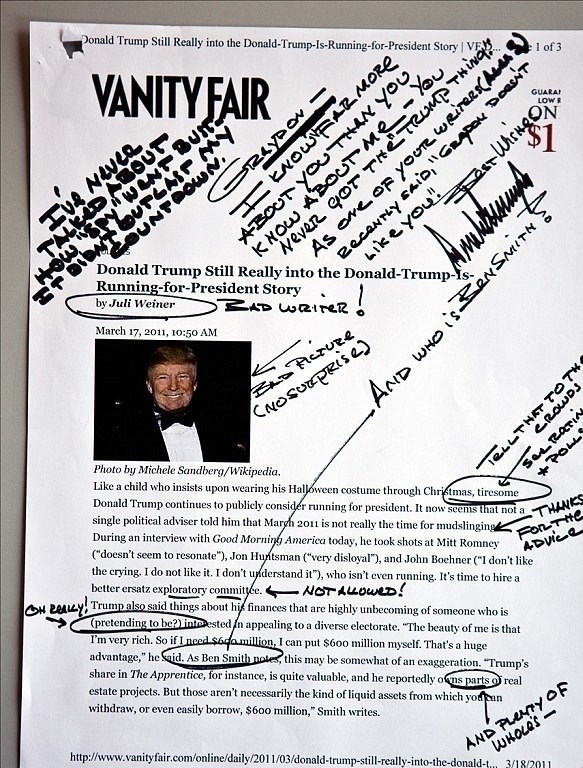 Donald Trump Still Really into the Donald-Trump-Is-Running-for-President Story | VF D... 1 of 3
VANITY FAIR
GUARAN
LOW R
ON
$1
I'VE NEVER
TALKED ABOUT BUT
HOW "SPY" WENT BUST
IT DIDN'T OUTLAST MY
COUNTDOWN!
GRAYDON —
I KNOW FAR MORE
ABOUT YOU THAN YOU
KNOW ABOUT ME — YOU
NEVER GOT THE TRUMP THING!
AS ONE OF YOUR WRITERS
RECENTLY SAID, "GRAYDON DOESN'T
LIKE YOU!"
BEST WISHES
Donald Trump Still Really into the Donald-Trump-Is-
Running-for-President Story
by Juli Weiner
BAD WRITER!
March 17, 2011, 10:50 AM
BAD PICTURE
(NO SURPRISE)
AND WHO IS BEN SMITH?
Photo by Michele Sandberg/Wikipedia.
TELL THAT TO THE
CROWDS
SEE RATIN
+ POLLS
Like a child who insists upon wearing his Halloween costume through Christmas, tiresome
Donald Trump continues to publicly consider running for president. It now seems that not a
single political adviser told him that March 2011 is not really the time for mudslinging.
THANKS
FOR THE
ADVICE
During an interview with Good Morning America today, he took shots at Mitt Romney
("doesn't seem to resonate"), Jon Huntsman ("very disloyal"), and John Boehner ("I don't like
the crying. I do not like it. I don't understand it"), who isn't even running. It's time to hire a
better ersatz exploratory committee.
NOT ALLOWED!
OH REALLY!
Trump also said things about his finances that are highly unbecoming of someone who is
(pretending to be?) interested in appealing to a diverse electorate. "The beauty of me is that
I'm very rich. So if I need $600 million, I can put $600 million myself. That's a huge
advantage," he said. As Ben Smith notes, this may be somewhat of an exaggeration. "Trump's
share in The Apprentice, for instance, is quite valuable, and he reportedly owns parts of real
estate projects. But those aren't necessarily the kind of liquid assets from which you can
withdraw, or even easily borrow, $600 million," Smith writes.
AND PLENTY OF
WHOLES —
http://www.vanityfair.com/online/daily/2011/03/donald-trump-still-really-into-the-donald-t... 3/18/2011